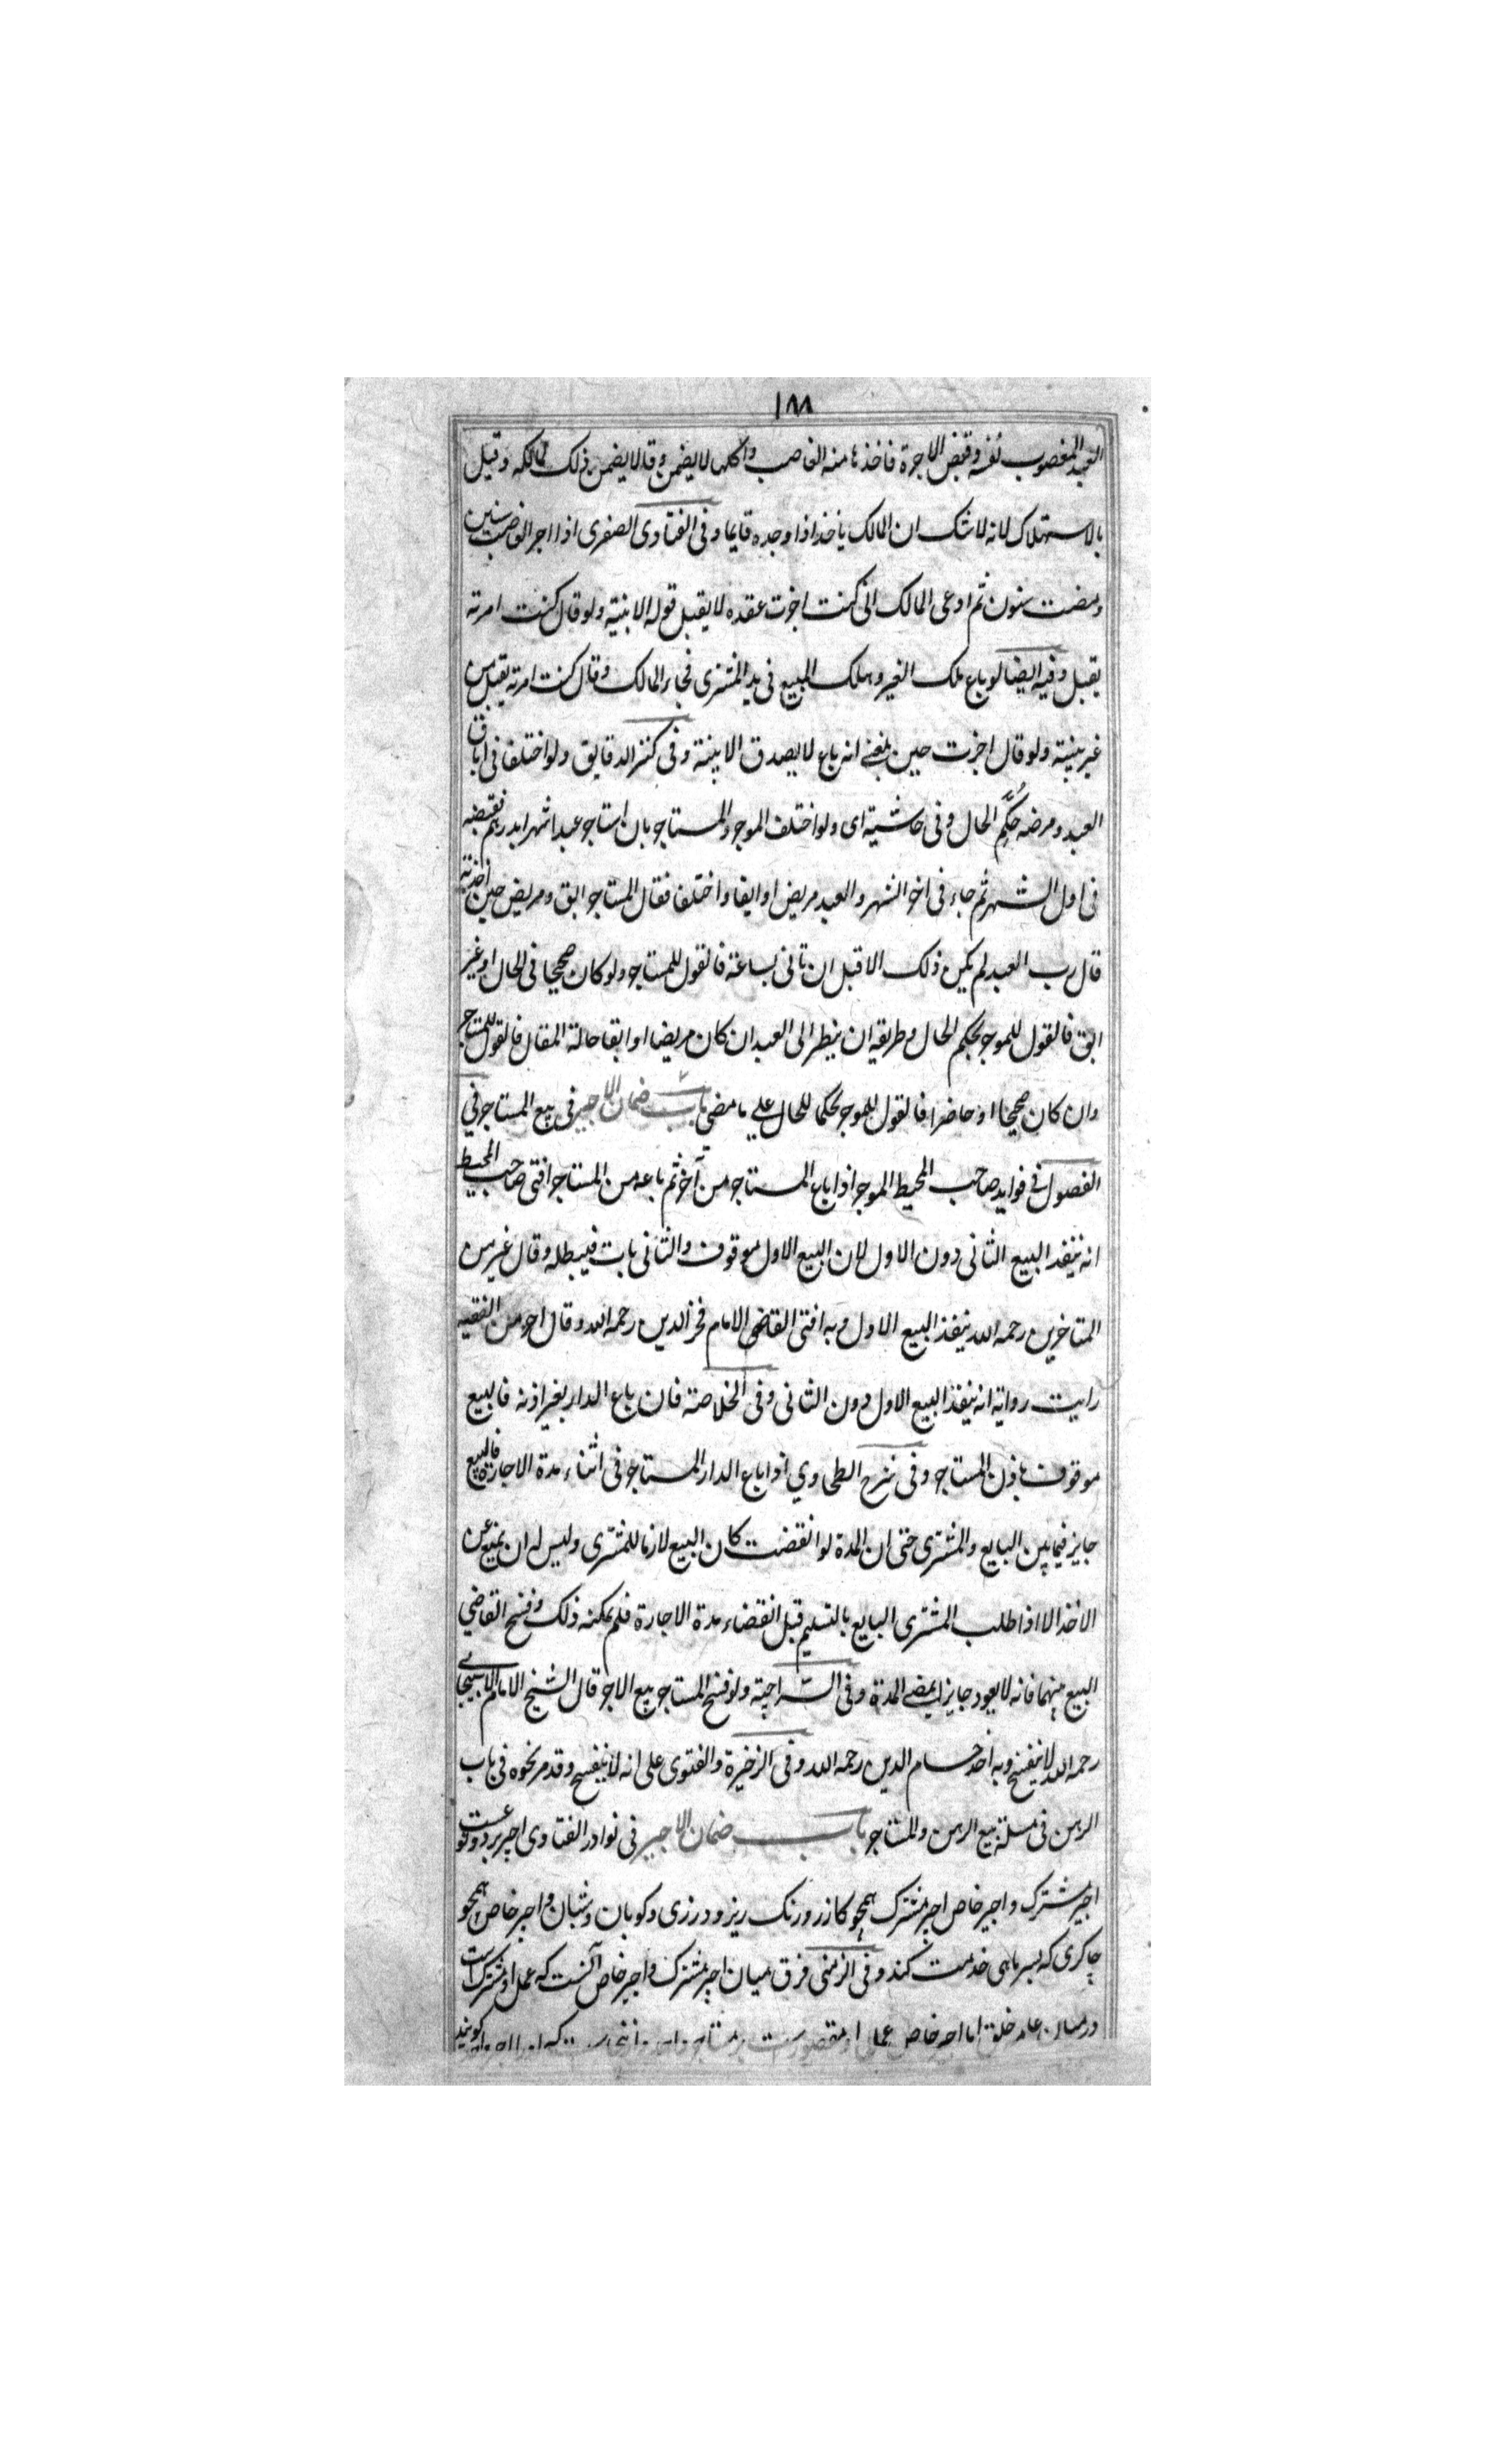 ١٨٨
العبد المغصوب نفسه وقبض الاجرة فاخذها منه الغاصب واكلها لا يضمن وقالا يضمن ذلك لمالكه وقيل
بالاستهلاك لانه لا شك ان المالك ياخذ اذا وجده قايما وفى الفتاوى الصغرى اذا اجر الغاصب سنين
ومضت سنون ثم ادعى المالك انى كنت اجزت عقده لا يقبل قوله الا ببينة ولو قال كنت امرته
يقبل وفيه ايضا لو باع ملك الغير وهلك المبيع فى يد المشترى فجاء المالك وقال كنت امرته يقبل من
غير بينة ولو قال اجزت حين بلغنى انه باع لا يصدق الا ببينة وفى كنز الدقايق ولو اختلفا فى اباق
العبد ومرضه حُكِّم الحال وفى حاشيته اى ولو اختلف الموجر والمستاجر بان استاجر عبدا شهرا بدرهم فقبضه
فى اول الشهر ثم جاء فى اخر الشهر والعبد مريض او ابقا واختلفا فقال المستاجر ابق ومريض حين اخذته
قال رب العبد لم يكن ذلك الا قبل ان تاتى بساعة فالقول للمستاجر ولو كان صحيحا فى الحال او غير
ابق فالقول للموجر بحكم الحال وطريقه ان ينظر الى العبد ان كان مريضا او ابقا حالة المقال فالقول للمستاجر
وان كان صحيحا او حاضرا فالقول للموجر تحكما للحال على ما مضى باب ضمان الاجير فى بيع المستاجر فى
الفصول فى فوايد صاحب المحيط الموجر اذا باع المستاجر من آخر ثم باعه من المستاجر افتى صاحب المحيط
انه ينفذ البيع الثانى دون الاول لان البيع الاول موقوف والثانى بات فيبطله وقال غير من
المتاخرين رحمه الله ينفذ البيع الاول وبه افتى القاضى الامام فخر الدين رحمه الله وقال اجر من الفقيه
رايت رواية انه ينفذ البيع الاول دون الثانى وفى الخلاصة فان باع الدار بغير اذنه فالبيع
موقوف باذن المستاجر وفى شرح الطحاوي اذا باع الدار المستاجر فى اثناء مدة الاجارة فالبيع
جايز فيما بين البايع والمشترى حتى ان المدة لو انقضت كان البيع لازما للمشترى وليس له ان يمنع عن
الاخذ الا اذا طلب المشترى البايع بالتسليم قبل انقضاء مدة الاجارة فلم يمكنه ذلك وفسخ القاضي
البيع بينهما فانه لا يعود جايزا بمضى المدة وفى السراجية ولو فسخ المستاجر بيع الاجر قال الشيخ الامام الاسبيجابى
رحمه الله لا ينفسخ وبه اخذ حسام الدين رحمه الله وفى الذخيرة والفتوى على انه لا ينفسخ وقد مر نحوه فى باب
الرهن فى مسئلة بيع الرهن والمستاجر باب ضمان الاجير فى نوادر الفتاوى اجير بر دو نوعست
اجير مشترك واجير خاص اجير مشترك همچو كازر ورنك ريز ودرزى وكوبان وشبان واجير خاص همچو
چاكرى كه بسر ماهى خدمت كند وفى الزمنى فرق ميان اجير مشترك واجير خاص آنست كه عمل او مشتركست
در ميان عامه خلق اما اجير خاص عمل او مقصورست بر مستاجر